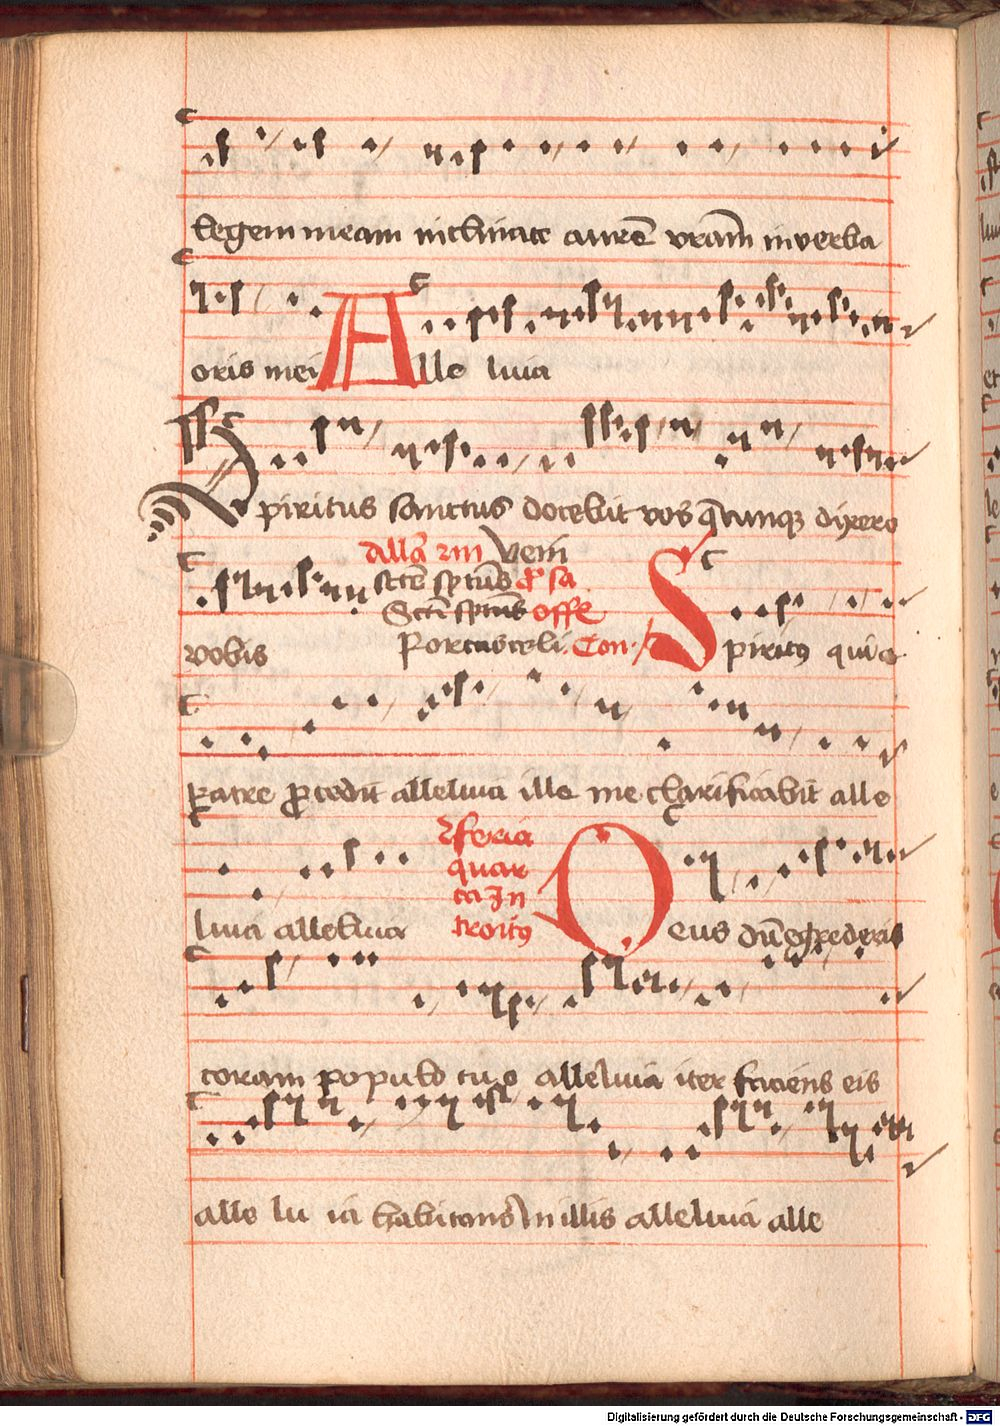 legem meam inclinate aurē vrām in verba
oris mei Alle luia
Spiritus sanctus docebit vos q̄cunq̄ dixero
vobis Allā 2m Veni
sctē sptūs ℟ sa
Sctī sptūs offe
Portas celi. Con
Spiritꝰ qui a
patre ꝓcedit alleluia ille me clarificabit alle
luia alleluia feria
quar
ta In
troitꝰ
Deus dū egrederis
coram populo tuo alleluia iter faciens eis
alle lu ia habitans in illis alleluia alle
Digitalisierung gefördert durch die Deutsche Forschungsgemeinschaft - DFG